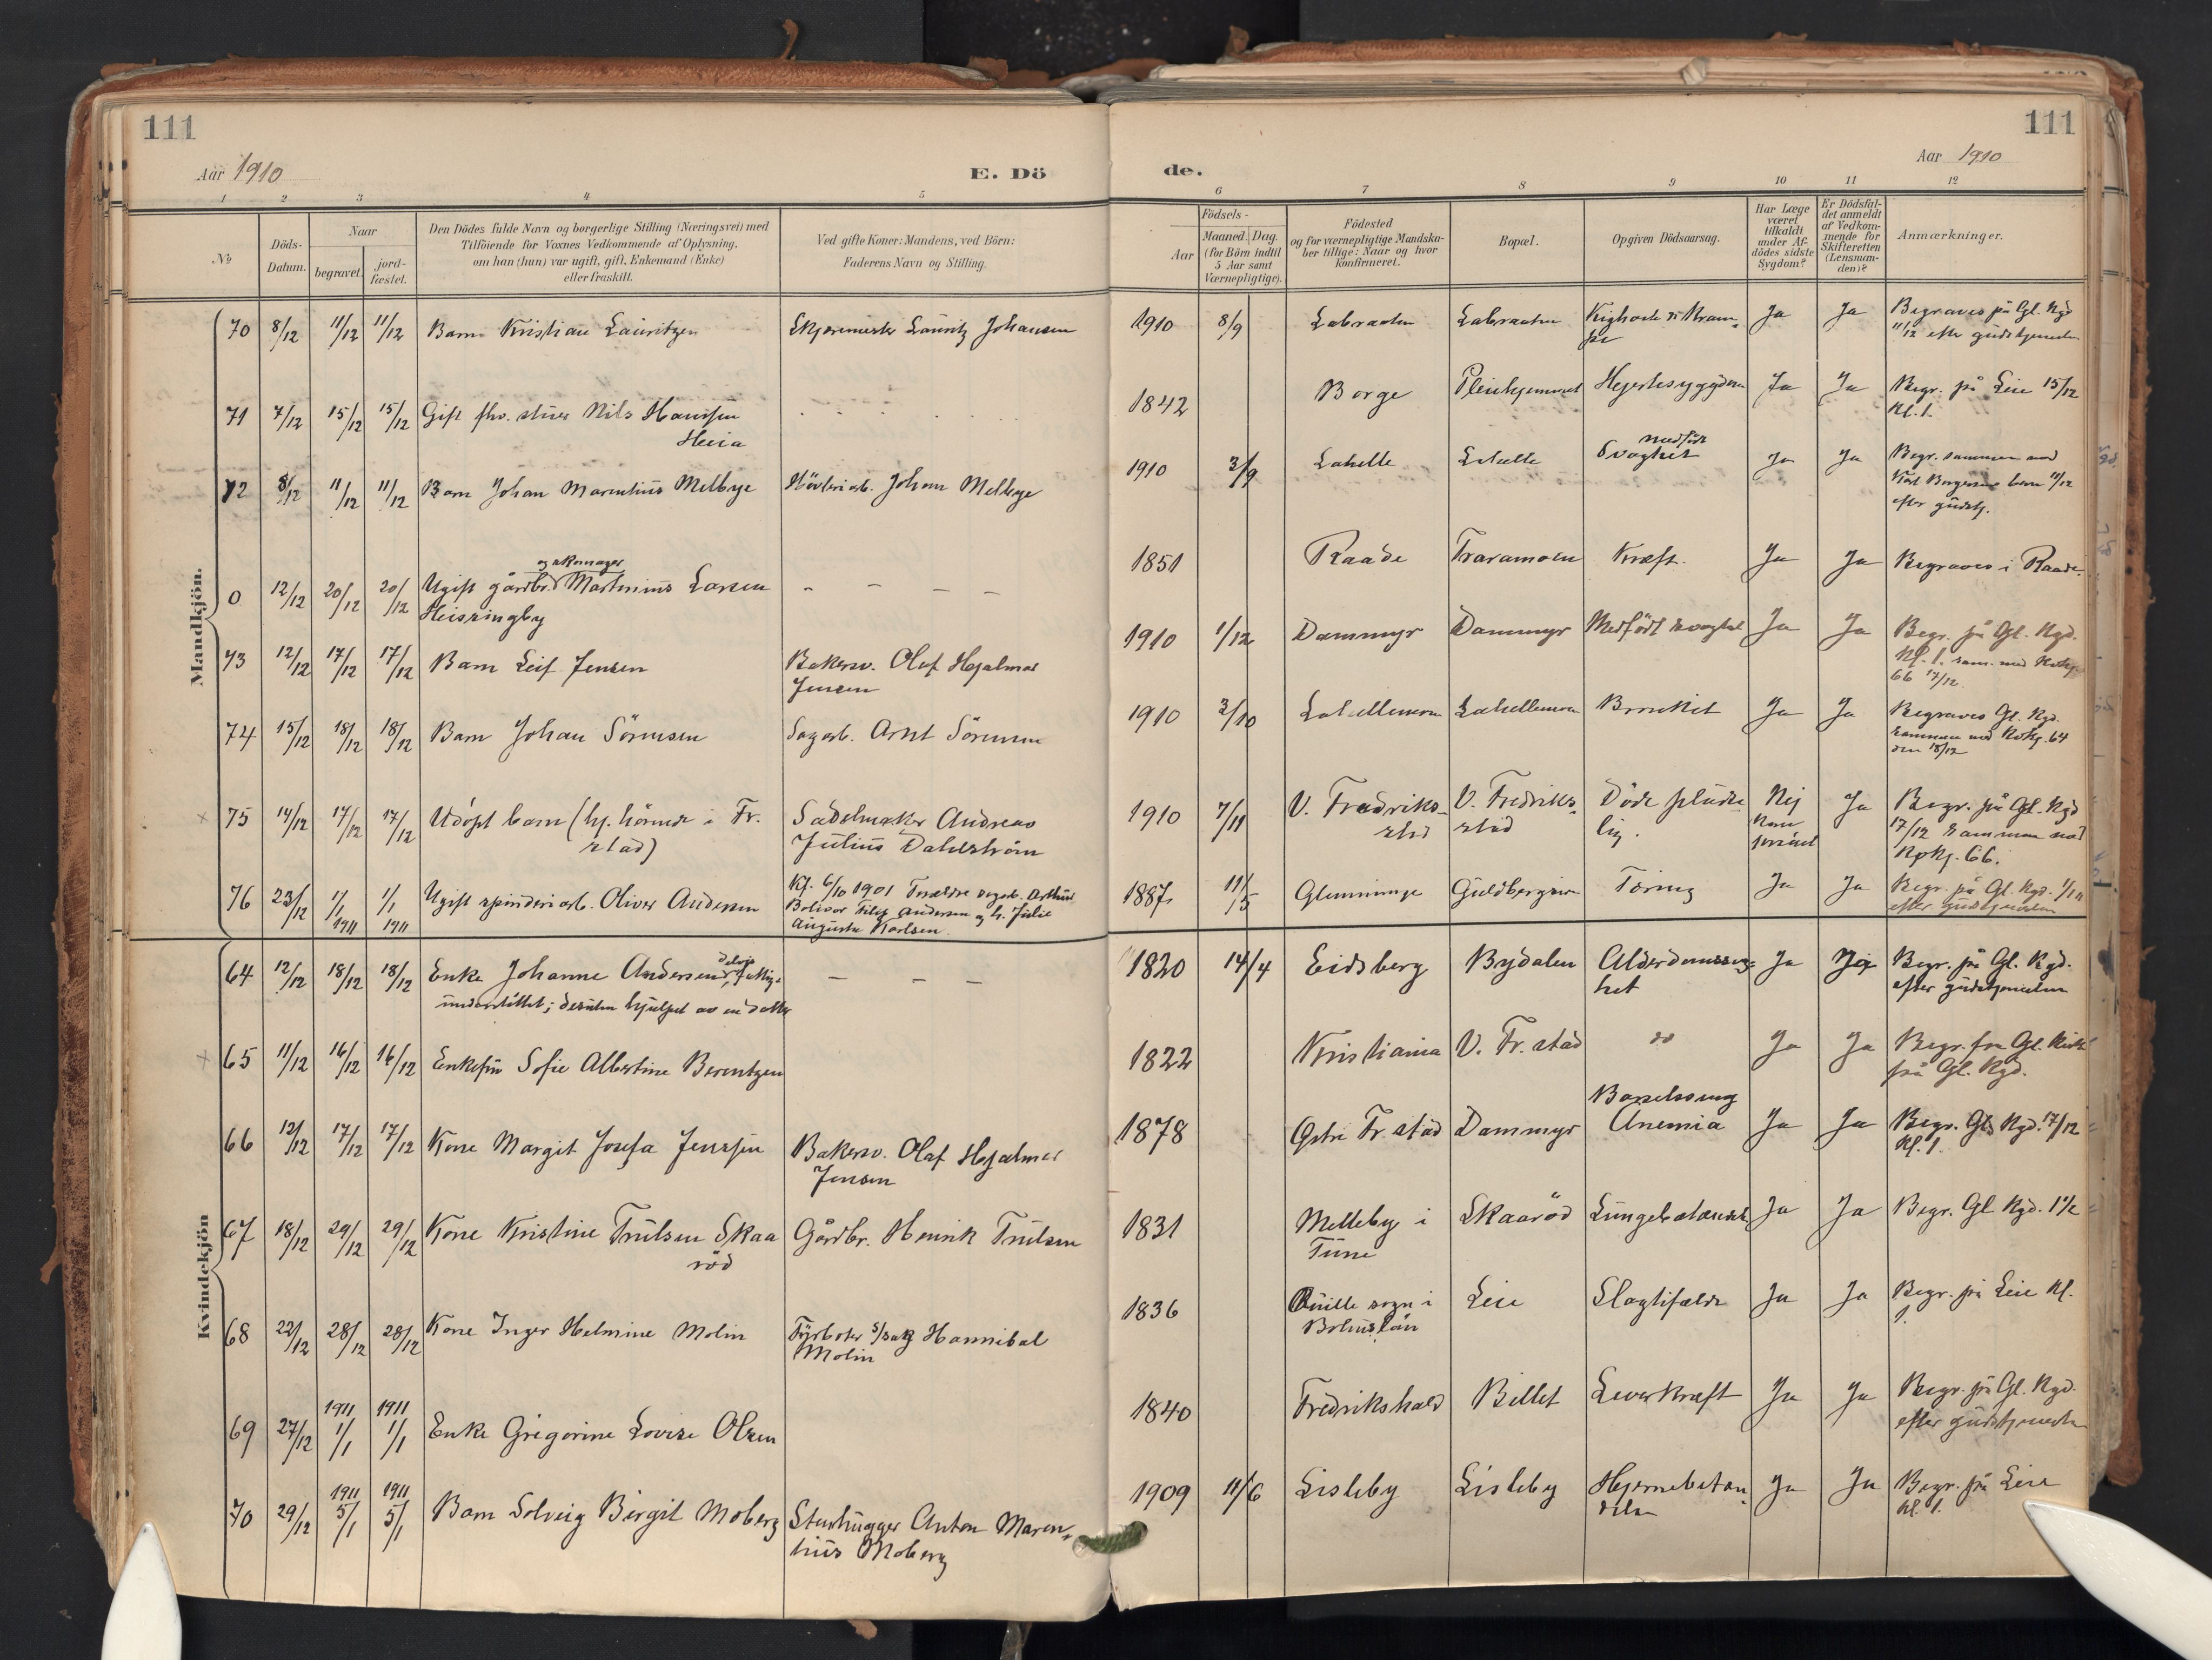 111
Aar 1910
E. Dö
1 2 3 4 5
No
Döds-
Datum.
Naar
begravet.
jord-
fæstet.
Den Dödes fulde Navn og borgerlige Stilling (Næringsvei) med
Tilföiende for Voxnes Vedkommende af Oplysning,
om han (hun) var ugift, gift, Enkemand (Enke)
eller fraskilt.
Ved gifte Koner: Mandens, ved Börn:
Faderens Navn og Stilling.
Mandkjön.
70 8/12 11/12 11/12 Barn Kristian Lauritzen Skjæremester Lauritz Johansen
71 7/12 15/12 15/12 Gift fhv. stuer Nils Hansen
Heia
72 8/12 11/12 11/12 Barn Johan Marentius Melbye Hövleriarb. Johan Melbye
og skomager
0 12/12 20/12 20/12 Ugift gårdbr. Martinius Larsen - - -
Heisringby
73 12/12 17/12 17/12 Barn Leif Jensen Bakersv. Olaf Hjalmar
Jensen
74 15/12 18/12 18/12 Barn Johan Sörensen Sagarb. Arnt Sörensen
75 14/12 17/12 17/12 Udöpt barn (hj. hörende i Fr.
stad)
Sadelmaker Andreas
Julius Dahlström
76 23/12 1/1 1911 1/1 1911 Ugift spinderiarb. Oliver Andersen
Kf. 6/10 1901 Forældre sagarb. Arthur
Bolivar Filip Andersen og h. Julie
Augusta Karlsen.
Kvindekjön
64 12/12 18/12 18/12 Enke Johanne Andersen, delvis fattig-
understöttet; desuten hjulpet av en datter
- - -
65 11/12 16/12 16/12 Enkefru Sofie Albertine Berentzen
66 12/12 17/12 17/12 Kone Margit Josefa Jensen Bakersv. Olaf Hjalmar
Jensen
67 18/12 29/12 29/12 Kone Kristine Trulsen Skaa
röd
Gårdbr. Henrik Trulsen
68 22/12 28/12 28/12 Kone Inger Helmine Molin Fyrböter Hannibal
Molin
69 27/12 1911 1/1 1911 1/1 Enke Gregorine Lovise Olsen
70 29/12 1911 5/1 1911 5/1 Barn Solveig Birgit Moberg Stenhugger Anton Maren-
tius Moberg
111
de.
Aar 1910
6 7 8 9 10 11 12
Födsels-
Aar
Maaned. Dag.
(for Börn indtil
5 Aar samt
Værnepligtige).
Födested
og for værnepligtige Mandska-
ber tillige: Naar og hvor
konfirmeret.
Bopæl.
Opgiven Dödsaarsag.
Har Læge
været
tilkaldt
under Af-
dödes sidste
Sygdom?
Er Dödsfal-
det anmeldt
af Vedkom-
mende for
Skifteretten
(Lensman-
den)?
Anmærkninger.
1910 8/9 Labraaten Labraaten Kighoste & Kram-
pe
Ja Ja Begraves på Gl. Kgd
11/12 efter gudstjenesten
1842 Borge Pleiehjemmet Hjertesygdom Ja Ja Begr. på Leie 15/12
Kl. 1.
1910 3/9 Lahelle Lahelle medfödt
Svaghet
Ja Ja Begr. sammen med
Karl Borgersens barn 11/12
efter gudstj.
1851 Raade Traramoen Kræft. Ja Ja Begraves i Raade.
1910 1/12 Dammyr Dammyr Medfödt svaghet Ja Ja Begr. på Gl. Kgd.
Kl. 1. sam. med Kvkj.
66 17/12.
1910 3/10 Lahellemoen Lahellemoen Bronkit Ja Ja Begraves Gl. Kgd.
sammen med Kvkj. 64
den 18/12
1910 7/11 V. Fredriks-
stad
V. Fredriks-
stad
Döde pludse-
lig.
Nej Ja Begr. på Gl. Kgd
17/12 sammen med
Kvkj. 66.
1887 11/5 Glemminge Guldbergsien Tæring Ja Ja Begr. på Gl. Kgd. 1/1 11
efter gudstjenesten
1820 14/4 Eidsberg Bydalen Alderdomssvag-
het
Ja Ja Begr. på Gl. Kgd.
efter gudstjenesten
1822 Kristiania V. Fr.stad do Ja Ja Begr. fra Gl. Kirke
på Gl. Kgd.
1878 Östre Fr.stad Dammyr Barselseng
Anemia
Ja Ja Begr. Gl. Kgd. 17/12
Kl. 1.
1831 Melleby i
Tune
Skaaröd Lungebetændelse Ja Ja Begr. Gl Kgd. 1 1/2
1836 Quille sogn i
Bohuslän
Leie Slagtilfælde Ja Ja Begr. på Leie Kl.
1.
1840 Fredrikshald Billet Leverkræft Ja Ja Begr. på Gl. Kgd.
efter gudstjenesten
1909 11/6 Lisleby Lisleby Hjernebetæn-
delse
Ja Ja Begr. på Leie
Kl. 1.